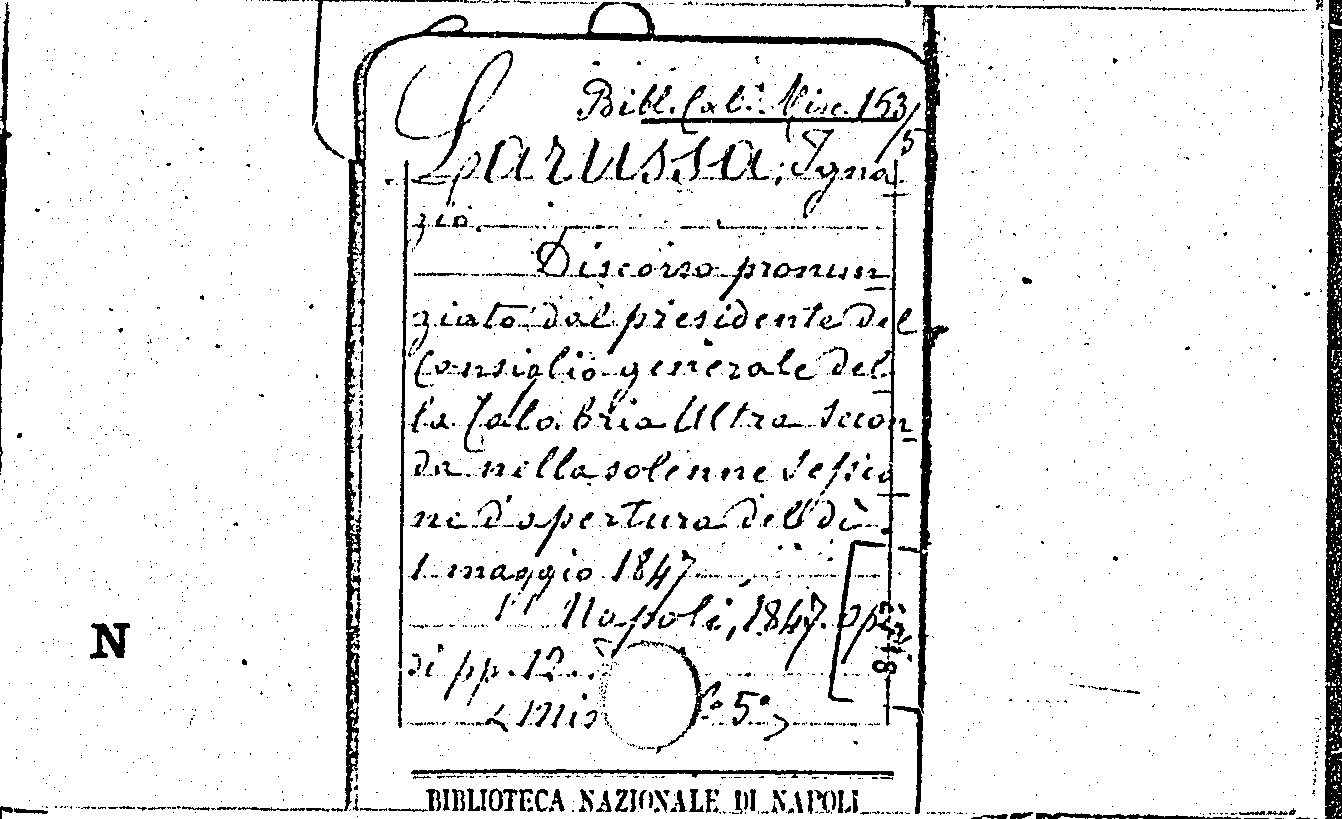 Bibl. Cal. Misc. 153/5
Larussa, Igna-
zio.
Discorso pronun-
ziato dal presidente del
Consiglio generale del-
la Calabria Ultra Secon-
da nella solenne sessio-
ne d'apertura del dì
1 maggio 1847
Napoli, 1847. op.
di pp. 12.
N
5°
BIBLIOTECA NAZIONALE DI NAPOLI